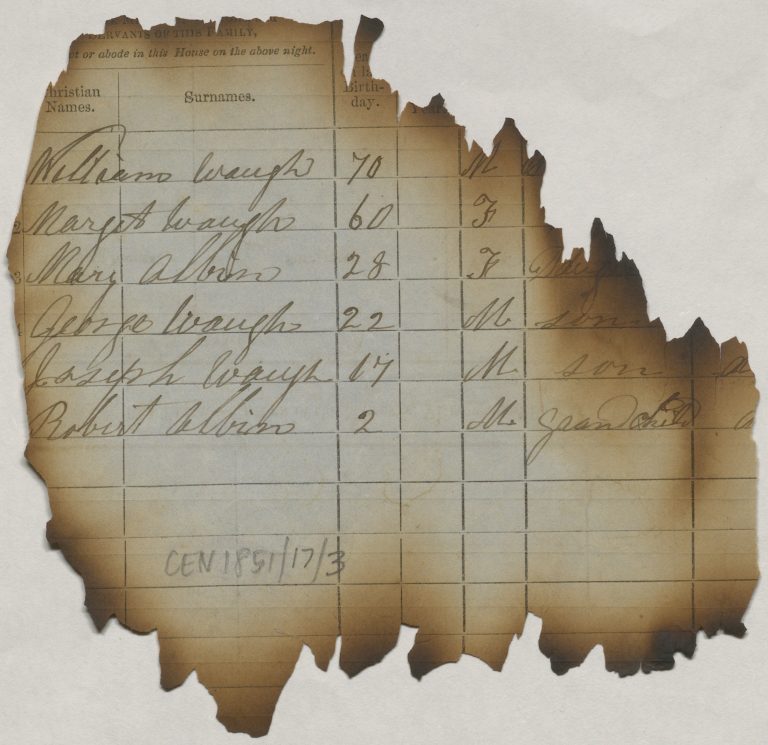 SERVANTS OF THIS FAMILY,
or abode in this House on the above night.
Christian Names.
Surnames.
Birth-
day.
William Waugh 70 M
2 Marget Waugh 60 F
3 Mary Albin 28 F
George Waugh 22 M son
Joseph Waugh 17 M son a
Robert Albin 2 M grand child a
CEN 1851/17/3